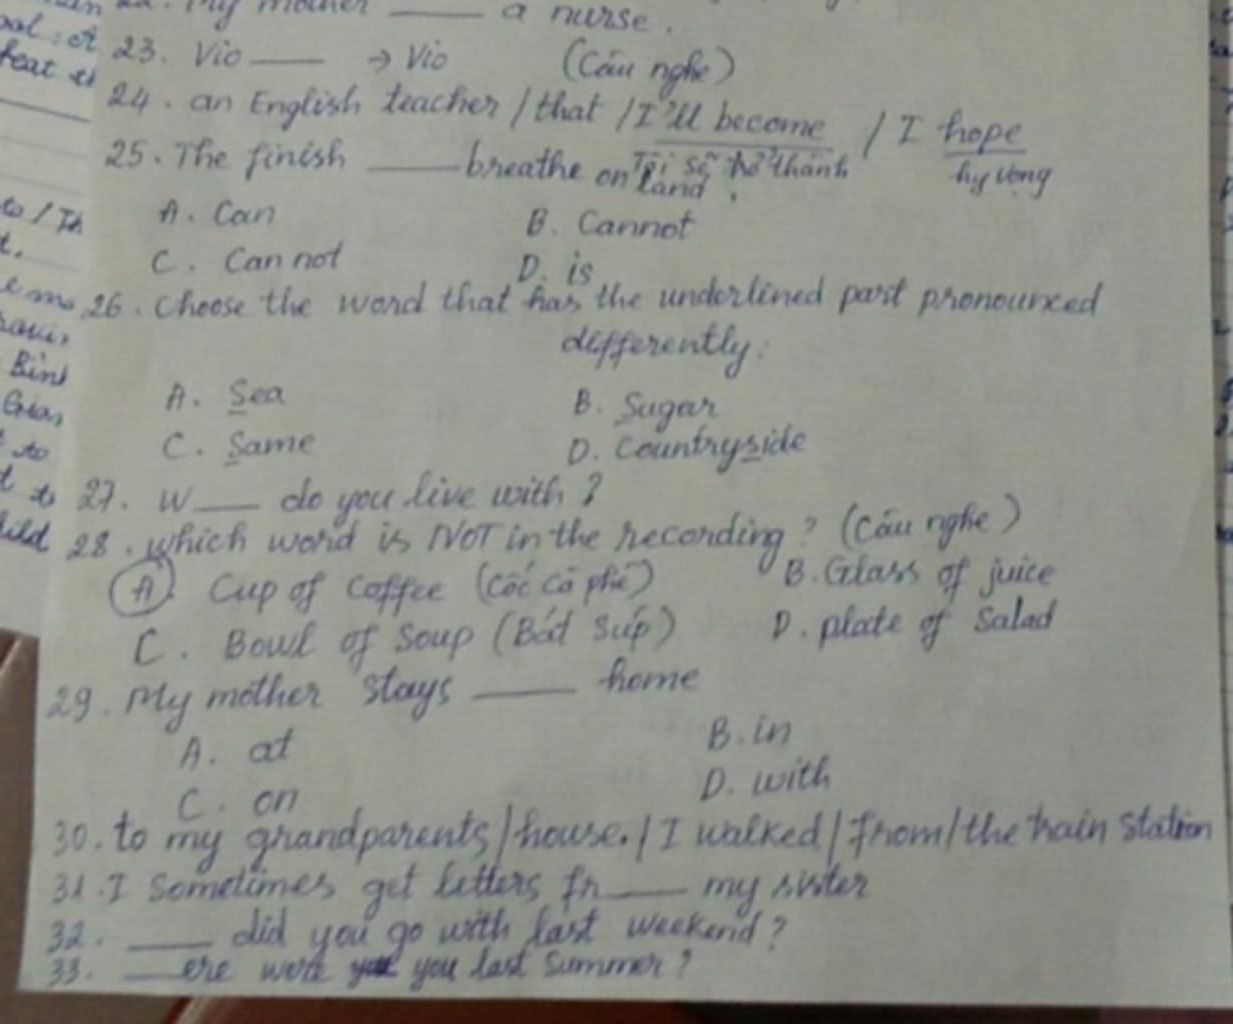 22. My mother ____ a nurse.
23. Vio ____ → Vio (Câu nghe)
24. an English teacher / that / I'll become / I hope
Tôi sẽ trở thành hy vọng
25. The finish ____ breathe on land.
A. Can B. Cannot
C. Can not D. is
26. Choose the word that has the underlined part pronounced
differently:
A. Sea B. Sugar
C. Same D. Countryside
27. W____ do you live with?
28. which word is NOT in the recording? (Câu nghe)
A. Cup of Coffee (Cốc cà phê) B. Glass of juice
C. Bowl of Soup (Bát súp) D. plate of Salad
29. My mother stays ____ home
A. at B. in
C. on D. with
30. to my grandparents / house. / I walked / from / the train station
31. I Sometimes get letters fr____ my sister
32. ____ did you go with last weekend?
33. ____ere were you last Summer?